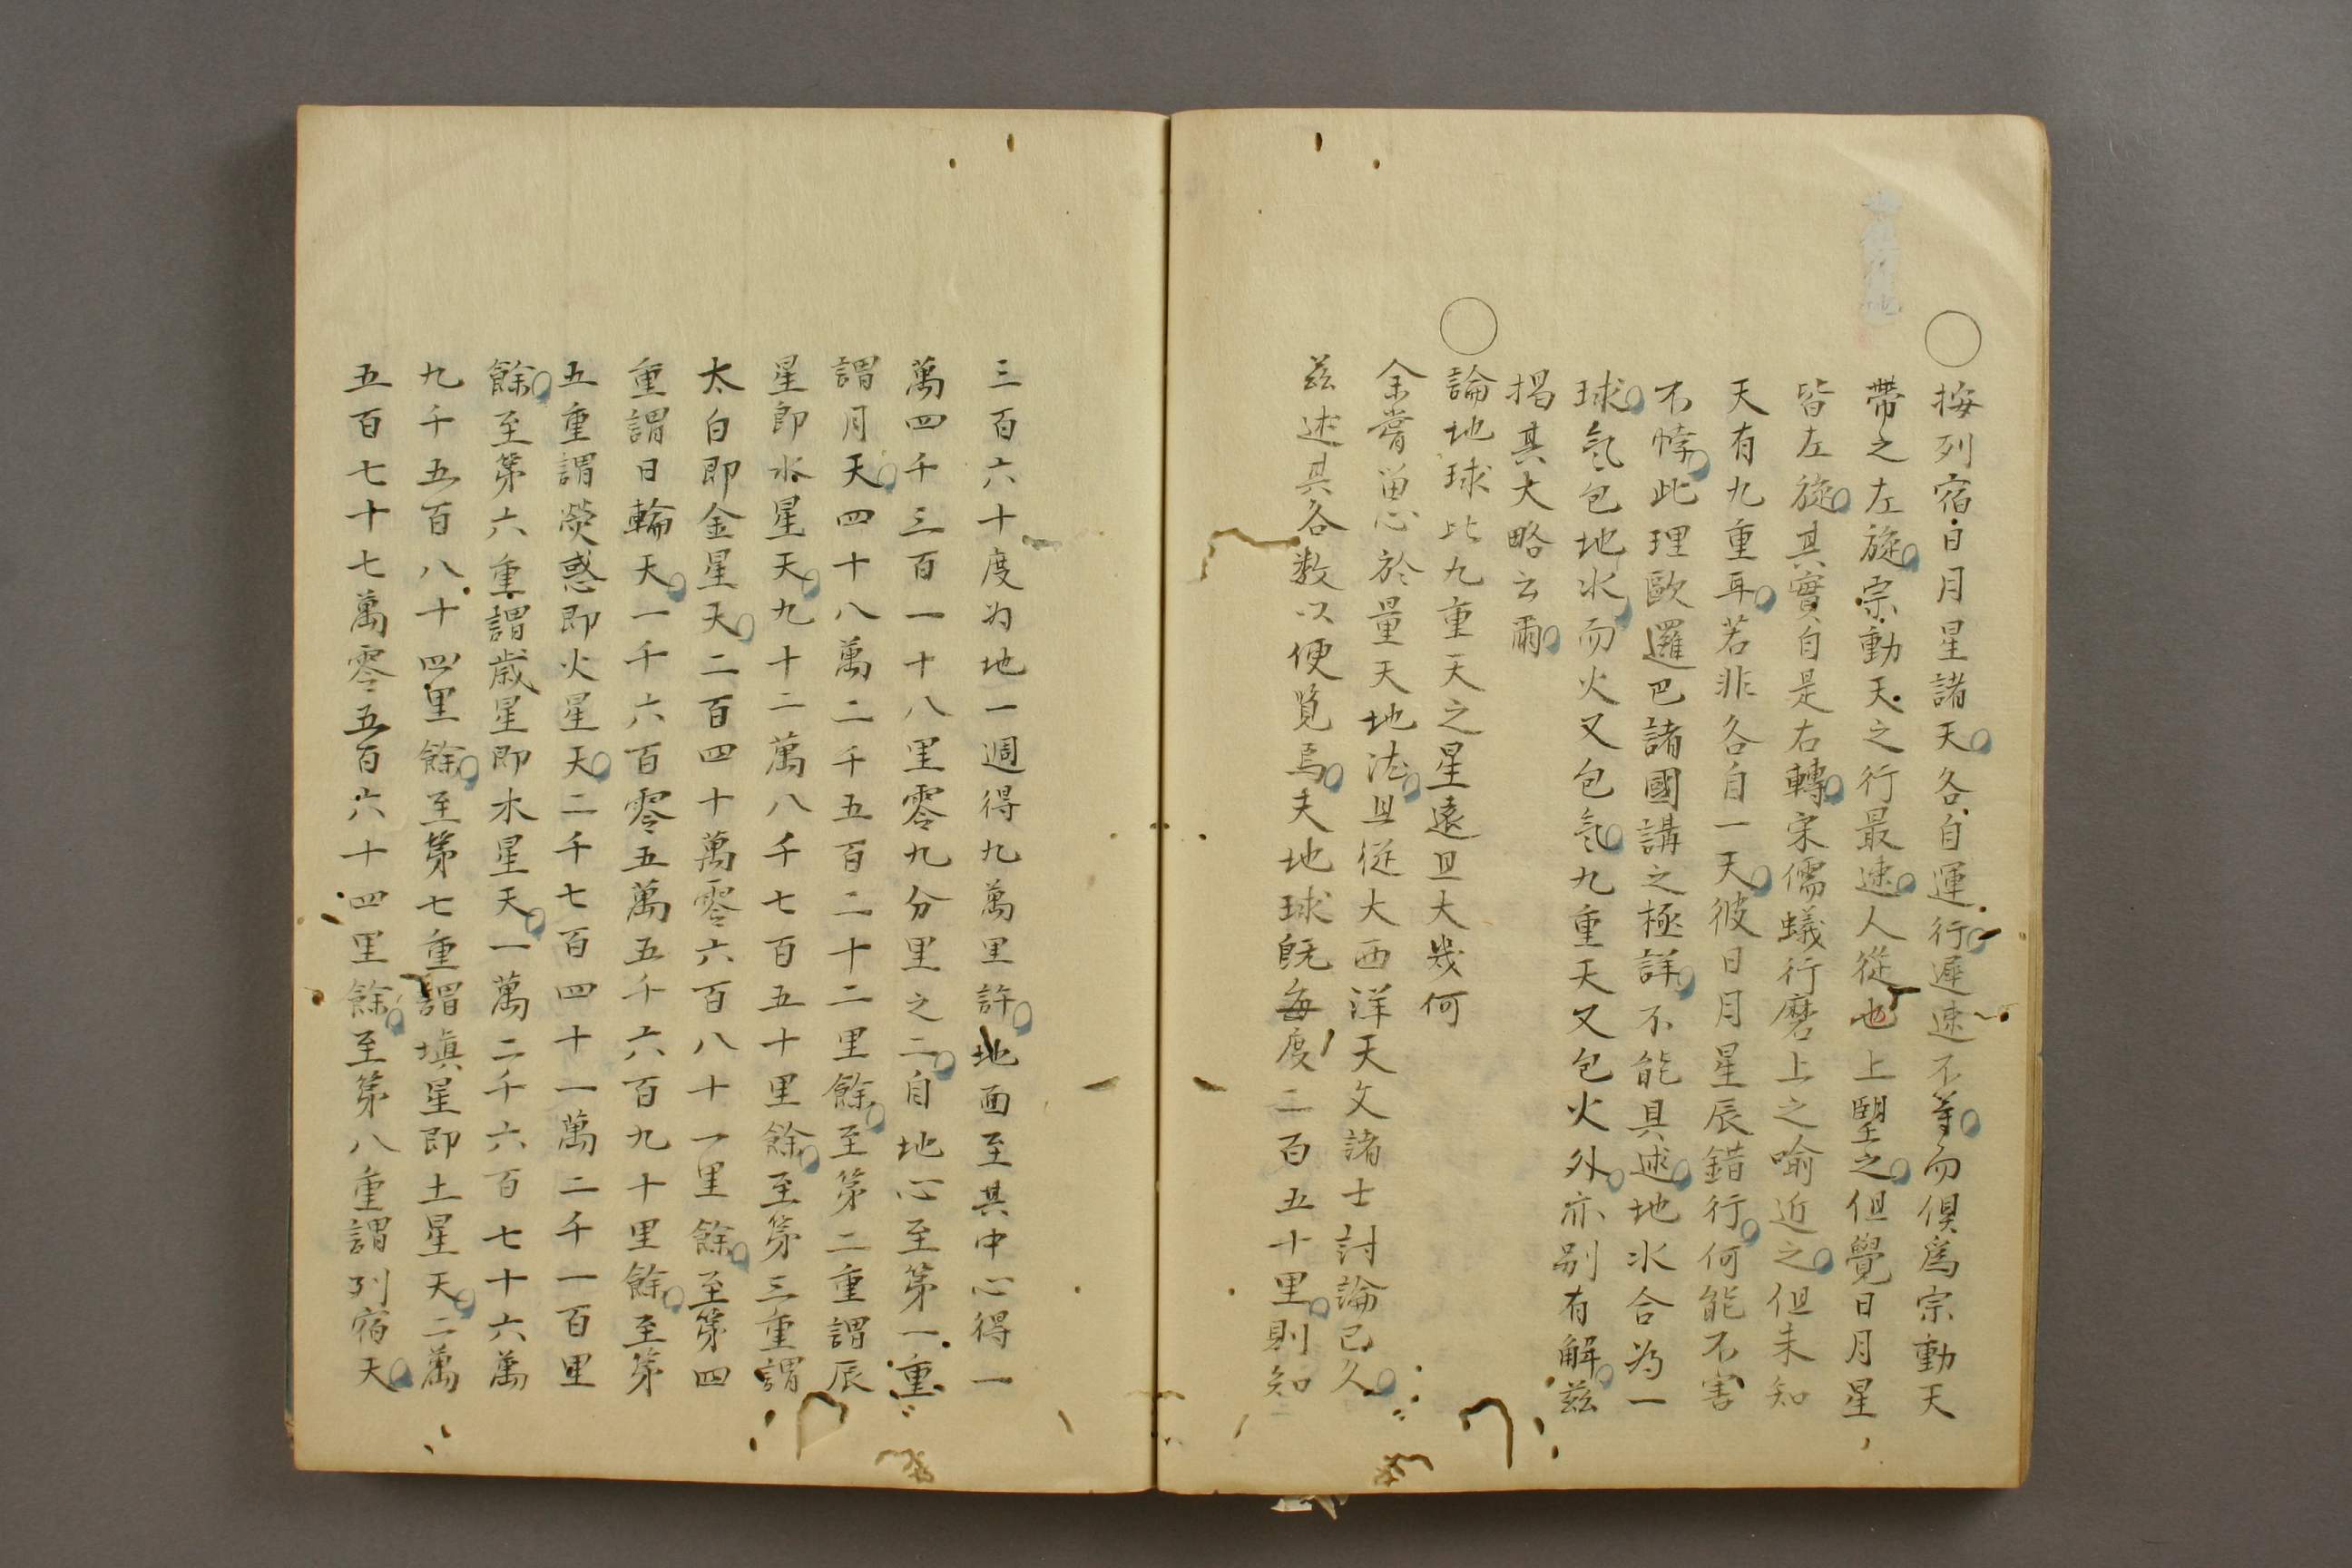 ○按列宿日月星諸天各自運行遲速不等而俱爲宗動天
帶之左旋宗動天之行最速人從地上望之但覺日月星
皆左旋其實自是右轉宋儒蟻行磨上之喻近之但未知
天有九重耳若非各自一天彼日月星辰錯行何能不害
不悖此理歐邏巴諸國講之極詳不能具述地水合爲一
球氣包地水而火又包氣九重天又包火外亦別有解茲
揭其大略云爾
○論地球比九重天之星遠且大幾何
余嘗留心於量天地法且從大西洋天文諸士討論已久
茲述其各数以便覧焉夫地球既每度二百五十里則知
三百六十度为地一週得九萬里許地面至其中心得一
萬四千三百一十八里零九分里之二自地心至第一重
謂月天四十八萬二千五百二十二里餘至第二重謂辰
星即水星天九十二萬八千七百五十里餘至第三重謂
太白即金星天二百四十萬零六百八十一里餘至第四
重謂日輪天一千六百零五萬五千六百九十里餘至第
五重謂熒惑即火星天二千七百四十一萬二千一百里
餘至第六重謂歳星即木星天一萬二千六百七十六萬
九千五百八十四里餘至第七重謂塡星即土星天二萬
五百七十七萬零五百六十四里餘至第八重謂列宿天